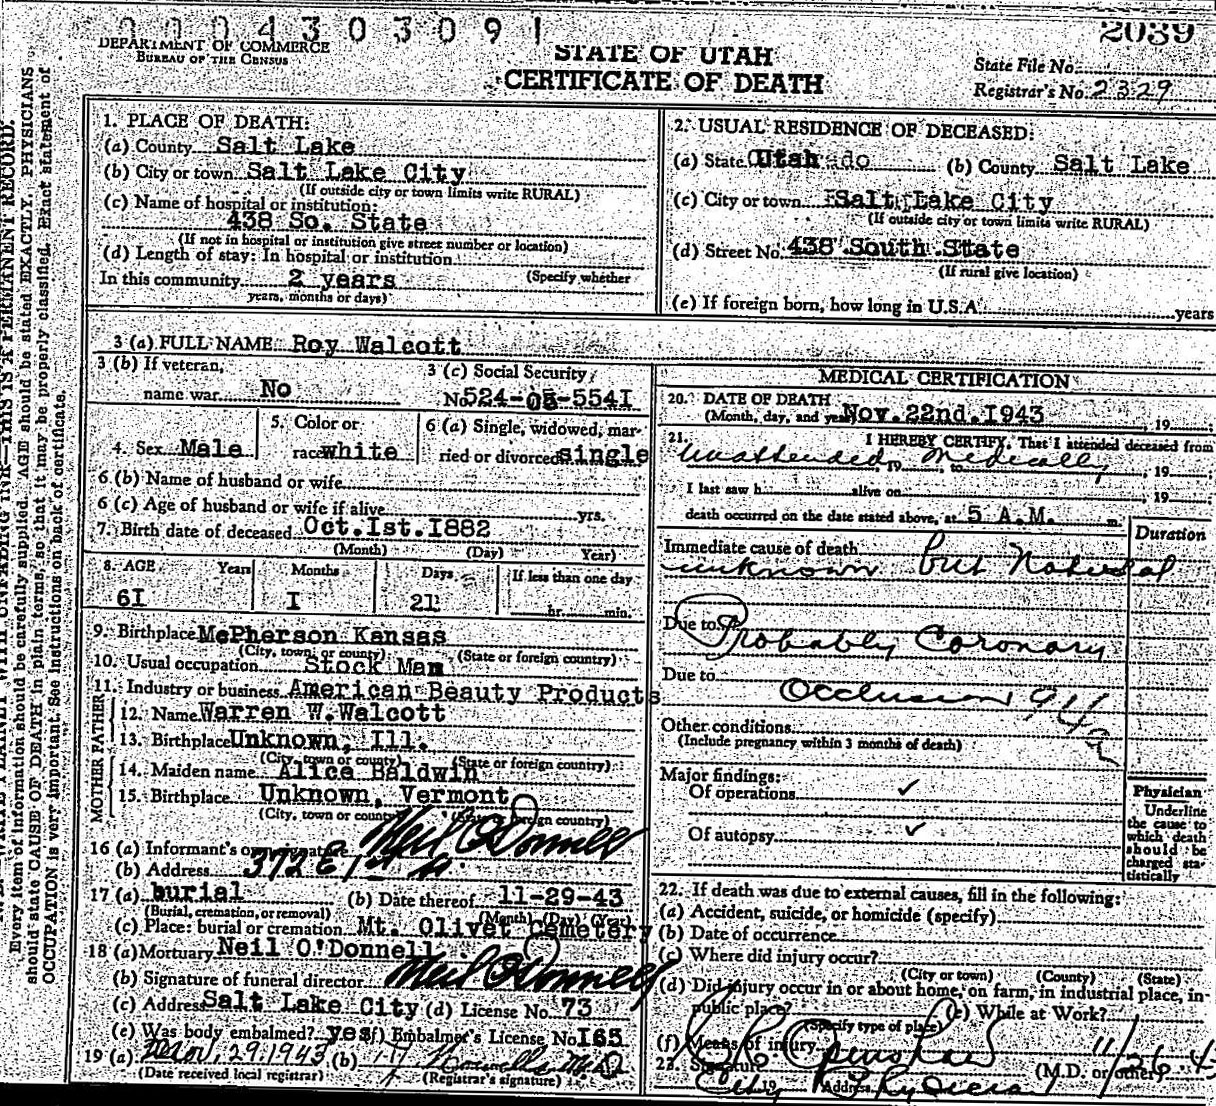 0 0 0 4 3 0 3 0 9 1
2039
DEPARTMENT OF COMMERCE
BUREAU OF THE CENSUS
STATE OF UTAH
CERTIFICATE OF DEATH
State File No.
Registrar's No. 2329
1. PLACE OF DEATH:
(a) County Salt Lake
(b) City or town Salt Lake City
(If outside city or town limits write RURAL)
(c) Name of hospital or institution:
438 So. State
(If not in hospital or institution give street number or location)
(d) Length of stay: In hospital or institution
(Specify whether
In this community 2 years
years, months or days)
2. USUAL RESIDENCE OF DECEASED:
(a) State Utah (b) County Salt Lake
(c) City or town Salt Lake City
(If outside city or town limits write RURAL)
(d) Street No. 438 South State
(If rural give location)
(e) If foreign born, how long in U.S.A. years
3 (a) FULL NAME Roy Walcott
3 (b) If veteran,
name war No
3 (c) Social Security
No. 524-05-554I
4. Sex Male
5. Color or
race white
6 (a) Single, widowed, mar-
ried or divorced single
6 (b) Name of husband or wife
6 (c) Age of husband or wife if alive yrs.
7. Birth date of deceased Oct.Ist.I882
(Month) (Day) Year)
8. AGE Years Months Days If less than one day
6I I 21 hr. min.
9. Birthplace McPherson Kansas
(City, town, or county) (State or foreign country)
10. Usual occupation Stock Man
11. Industry or business American Beauty Products
FATHER
12. Name Warren W.Walcott
13. Birthplace Unknown, Ill.
(City, town or county) (State or foreign country)
MOTHER
14. Maiden name Alice Baldwin
15. Birthplace Unknown, Vermont
(City, town or county) (State or foreign country)
16 (a) Informant's own signature Neil O'Donnell
(b) Address 372 E 1st So
17 (a) burial (b) Date thereof 11-29-43
(Burial, cremation, or removal) (Month) (Day) (Year)
(c) Place: burial or cremation Mt. Olivet Cemetery
18 (a) Mortuary Neil O'Donnell
(b) Signature of funeral director Neil O'Donnell
(c) Address Salt Lake City (d) License No. 73
(e) Was body embalmed? yes (f) Embalmer's License No. I65
19 (a) Nov. 29. 1943 (b)
(Date received local registrar) (Registrar's signature)
MEDICAL CERTIFICATION
20. DATE OF DEATH
(Month, day, and year) Nov.22nd.I943, 19
21. I HEREBY CERTIFY, That I attended deceased from
Unattended, 19, to Medically, 19
I last saw h alive on, 19
death occurred on the date stated above, at 5 A.M. m.
Duration
Immediate cause of death
unknown but Natural
Due to Probably Coronary
Due to Occlusion 94
Other conditions
(Include pregnancy within 3 months of death)
Major findings:
Of operations ✓
Of autopsy ✓
Physician
Underline
the cause to
which death
should be
charged sta-
tistically
22. If death was due to external causes, fill in the following:
(a) Accident, suicide, or homicide (specify)
(b) Date of occurrence
(c) Where did injury occur?
(City or town) (County) (State)
(d) Did injury occur in or about home, on farm, in industrial place, in
public place? (e) While at Work?
(Specify type of place)
(f) Means of injury
23. Signature (M.D. or other) 11/26 43
City Physician
Address
Every item of information should be carefully supplied. AGE should be stated EXACTLY. PHYSICIANS
should state CAUSE OF DEATH in plain terms, so that it may be properly classified. Exact statement of
OCCUPATION is very important. See instructions on back of certificate.